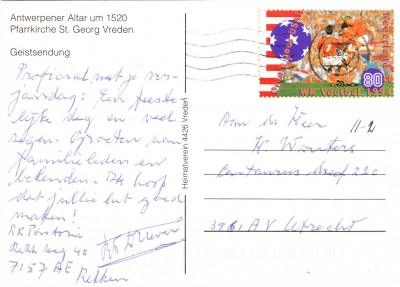 Antwerpener Altar um 1520
Pfarrkirche St. Georg Vreden
Geistsendung
Proficiat met je ver-
jaardag! Een feeste-
lijke dag en veel
zegen. Groeten aan
familieleden en
bekenden. Ik hoop
dat jullie het goed
maken!
RK Pastorie
weg 40
7157 AE
Rekken
Heimatverein 4426 Vreden
Nederland
80
WK Voetbal 1994
11-2
Aan de Heer
H. Wouters
Centaurusdreef 22c
AV Utrecht